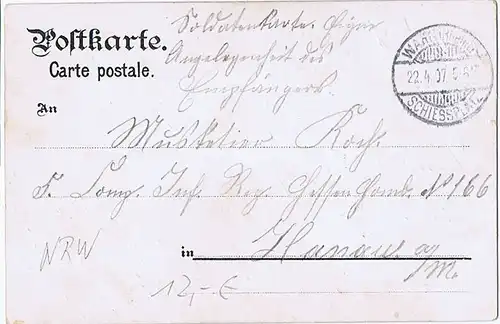 Postkarte.
Carte postale.
Soldatenkarte. Eigne
Angelegenheit des
Empfängers.
WAHN
22.4.07 5-6N
SCHIESSPLATZ
An
Musketier Koch.
5. Comp. Inf. Reg. Hessen Homb. No 166
in Hanau a/
M.
NRW
12,- €